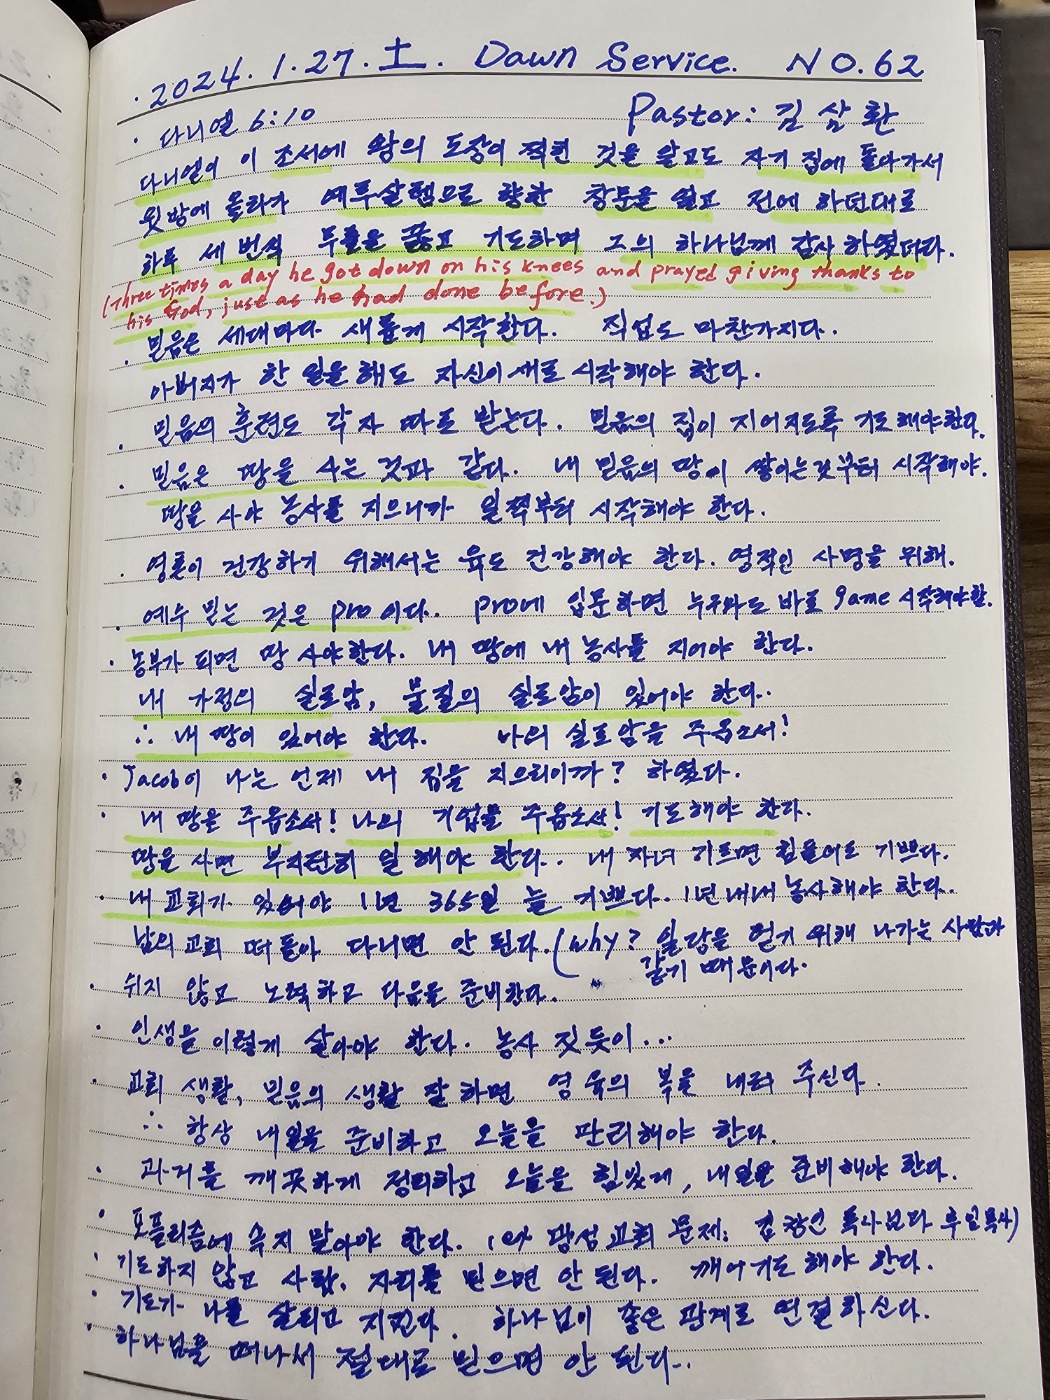 ·2024.1.27.土. Dawn Service. NO.62
· 다니엘 6:10 Pastor: 김삼환
다니엘이 이 조서에 왕의 도장이 찍힌 것을 알고도 자기 집에 돌아가서
윗방에 올라가 예루살렘으로 향한 창문을 열고 전에 하던대로
하루 세 번씩 무릎을 꿇고 기도하며 그의 하나님께 감사하였더라.
(Three times a day he got down on his knees and prayed giving thanks to
his God, just as he had done before.)
· 믿음은 세대마다 새롭게 시작한다. 직업도 마찬가지다.
아버지가 한 일을 해도 자신이 새로 시작해야 한다.
· 믿음의 훈련도 각자 따로 받는다. 믿음의 집이 지어지도록 기도해야한다.
· 믿음은 땅을 사는 것과 같다. 내 믿음의 땅이 쌓이는것부터 시작해야.
땅을 사야 농사를 지으니까 일찍부터 시작해야 한다.
· 영혼이 건강하기 위해서는 육도 건강해야 한다. 영적인 사명을 위해.
· 예수 믿는 것은 pro이다. pro에 입문하면 누구와도 바로 game 시작해야함.
· 농부가 되면 땅 사야한다. 내 땅에 내 농사를 지어야 한다.
내 가정의 실로암, 물질의 실로암이 있어야 한다.
∴ 내 땅이 있어야 한다. 나의 실로암을 주옵소서!
· Jacob이 나는 언제 내 집을 지으리이까? 하였다.
· 내 땅을 주옵소서! 나의 기업을 주옵소서! 기도해야 한다.
땅을 사면 부지런히 일해야 한다. 내 자녀 기르면 힘들어도 기쁘다.
· 내 교회가 있어야 1년 365일 늘 기쁘다. 1년 내내 농사해야 한다.
남의 교회 떠돌아 다니면 안 된다. (why? 일당을 얻기 위해 나가는 사람과
같기 때문이다.
· 쉬지 않고 노력하고 다음을 준비한다.
· 인생을 이렇게 살아야 한다. 농사 짓듯이...
· 교회 생활, 믿음의 생활 잘 하면 영육의 복을 내려 주신다.
∴ 항상 내일을 준비하고 오늘을 관리해야 한다.
· 과거를 깨끗하게 정리하고 오늘을 힘있게, 내일을 준비해야 한다.
· 포플리즘에 속지 말아야 한다. (예 광성교회 문제: 김창인 목사보다 후임목사)
· 기도하지 않고 사람, 자리를 믿으면 안 된다. 깨어기도 해야 한다.
· 기도가 나를 살리고 지킨다. 하나님이 좋은 관계로 연결하신다.
· 하나님을 떠나서 절대로 믿으면 안 된다.